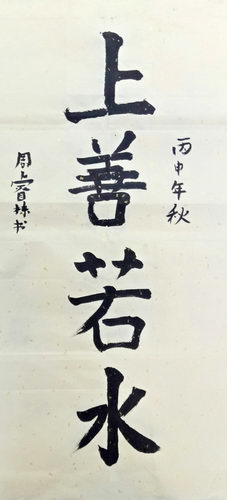 丙申年秋
上善若水
周上睿林书